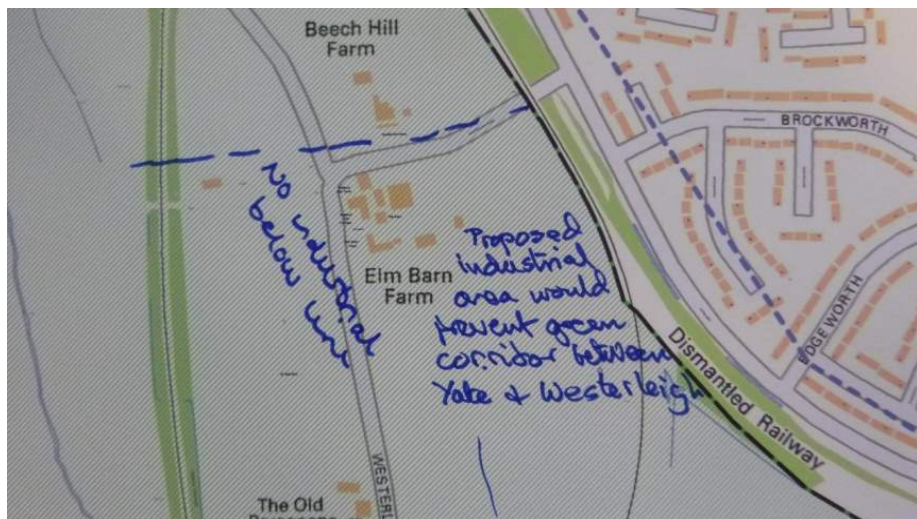 Beech Hill
Farm
BROCKWORTH
No industrial
below line
Elm Barn
Farm
Proposed
industrial
area would
prevent green
corridor between
Yate & Westerleigh
Dismantled Railway
WESTERL
The Old